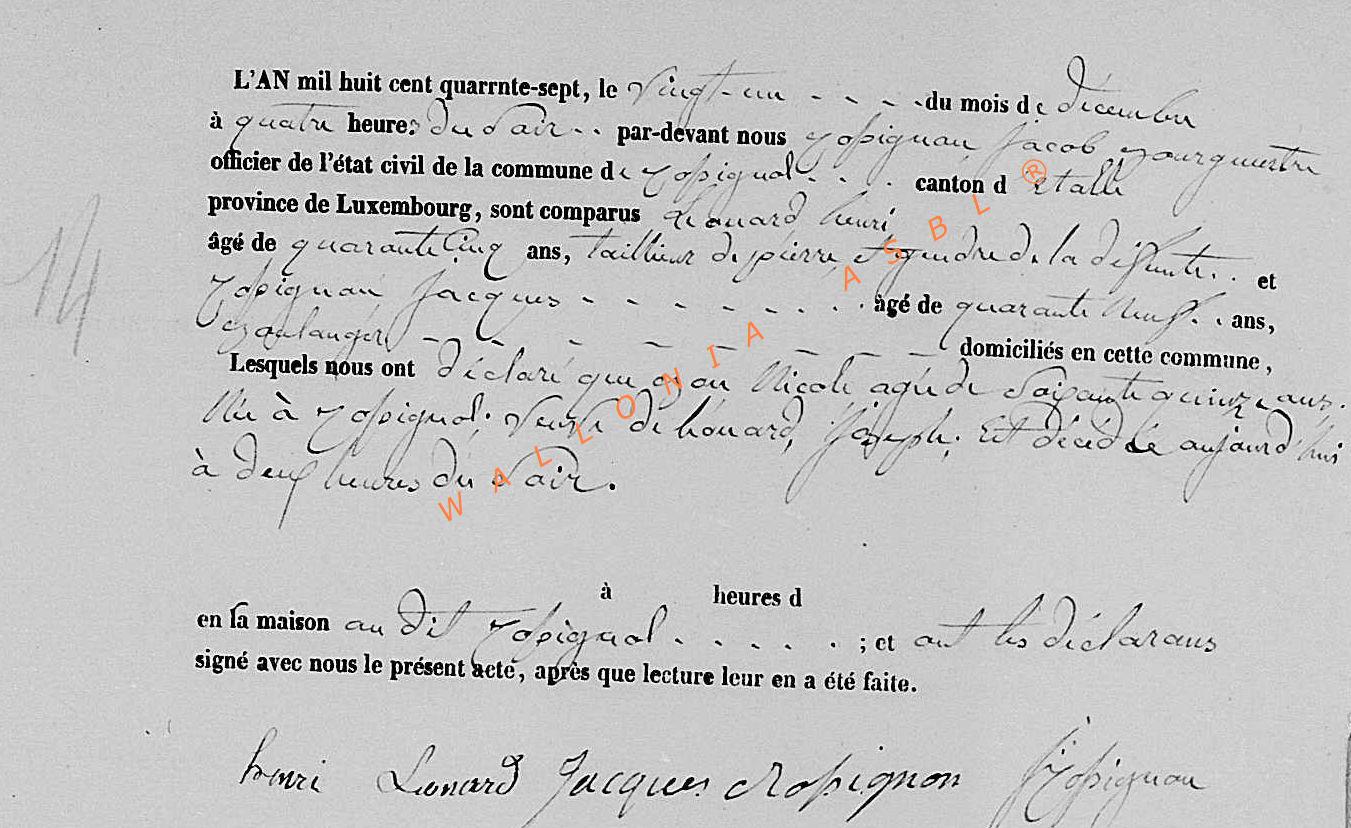 L'AN mil huit cent quarrnte-sept, le Vingt-un - - - - du mois de décembre
à quatre heures du Soir - - par-devant nous Rossignon Jacob Bourgmestre
officier de l'état civil de la commune de Rossignol - - - canton d'étalle
province de Luxembourg, sont comparus henri
âgé de quarante Cinq ans, tailleur de pierre et gendre de la défunte. . et
Rossignon Jacques - - - - - - - - âgé de quarante Neuf. . ans,
Boulanger - - - - - - - - - domiciliés en cette commune,
Lesquels nous ont déclaré que Nicole agé de Soixante quinze ans.
Née à Rossignol. Veuve de Joseph. Est décédée aujourd'hui
à deux heures du Soir.
à heures d
en sa maison au dit Rossignol - - - - - ; et ont les déclarans
signé avec nous le présent acte, après que lecture leur en a été faite.
henri Lonard Jacques Rossignon J Rossignon
14
WALLONIA ASBL ®